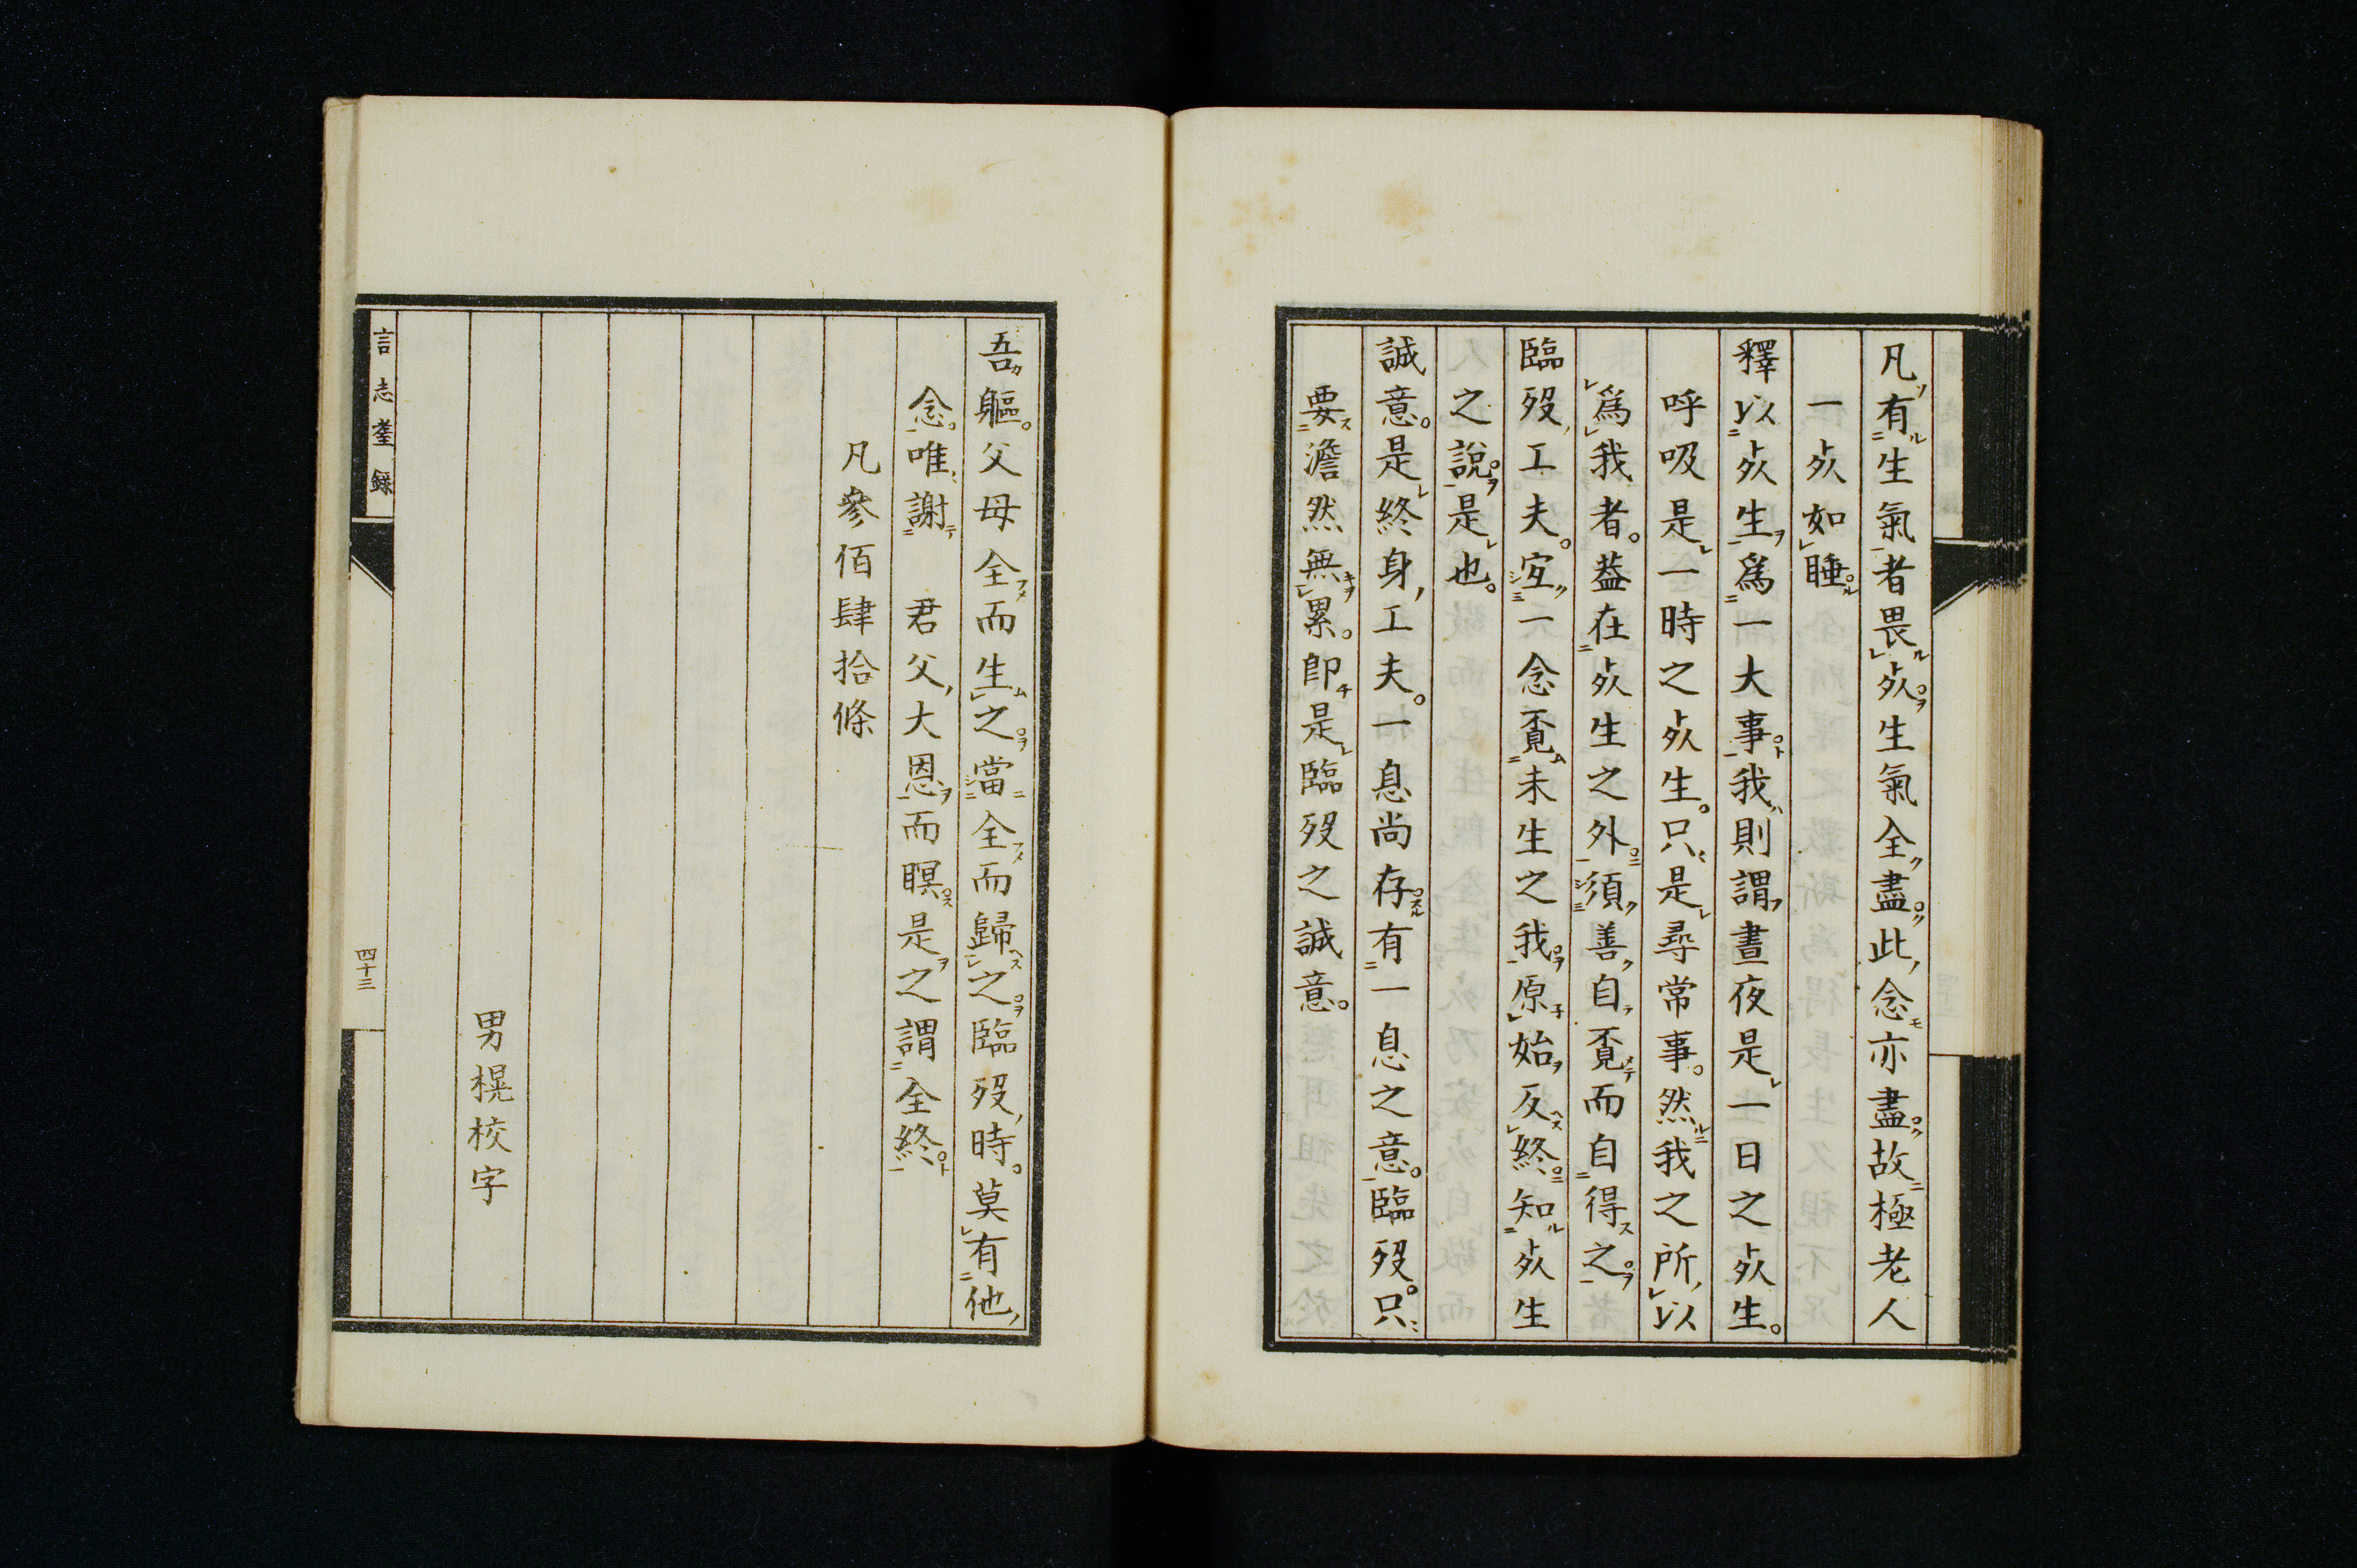 凡有生氣者畏死生氣全盡此念亦盡故極老人
一死如睡
釋以死生爲一大事我則謂晝夜是一日之死生
呼吸是一時之死生只是尋常事然我之所以
爲我者葢在死生之外須善自覔而自得之
臨歿工夫宜一念覔未生之我原始反終知死生
之說是也
誠意是終身工夫一息尚存有一息之意臨歿只
要澹然無累卽是臨歿之誠意
吾軀父母全而生之當全而歸之臨歿時莫有他
念唯謝 君父大恩而瞑是之謂全終
凡參佰肆拾條
男榥校字
言志耋錄
四十三